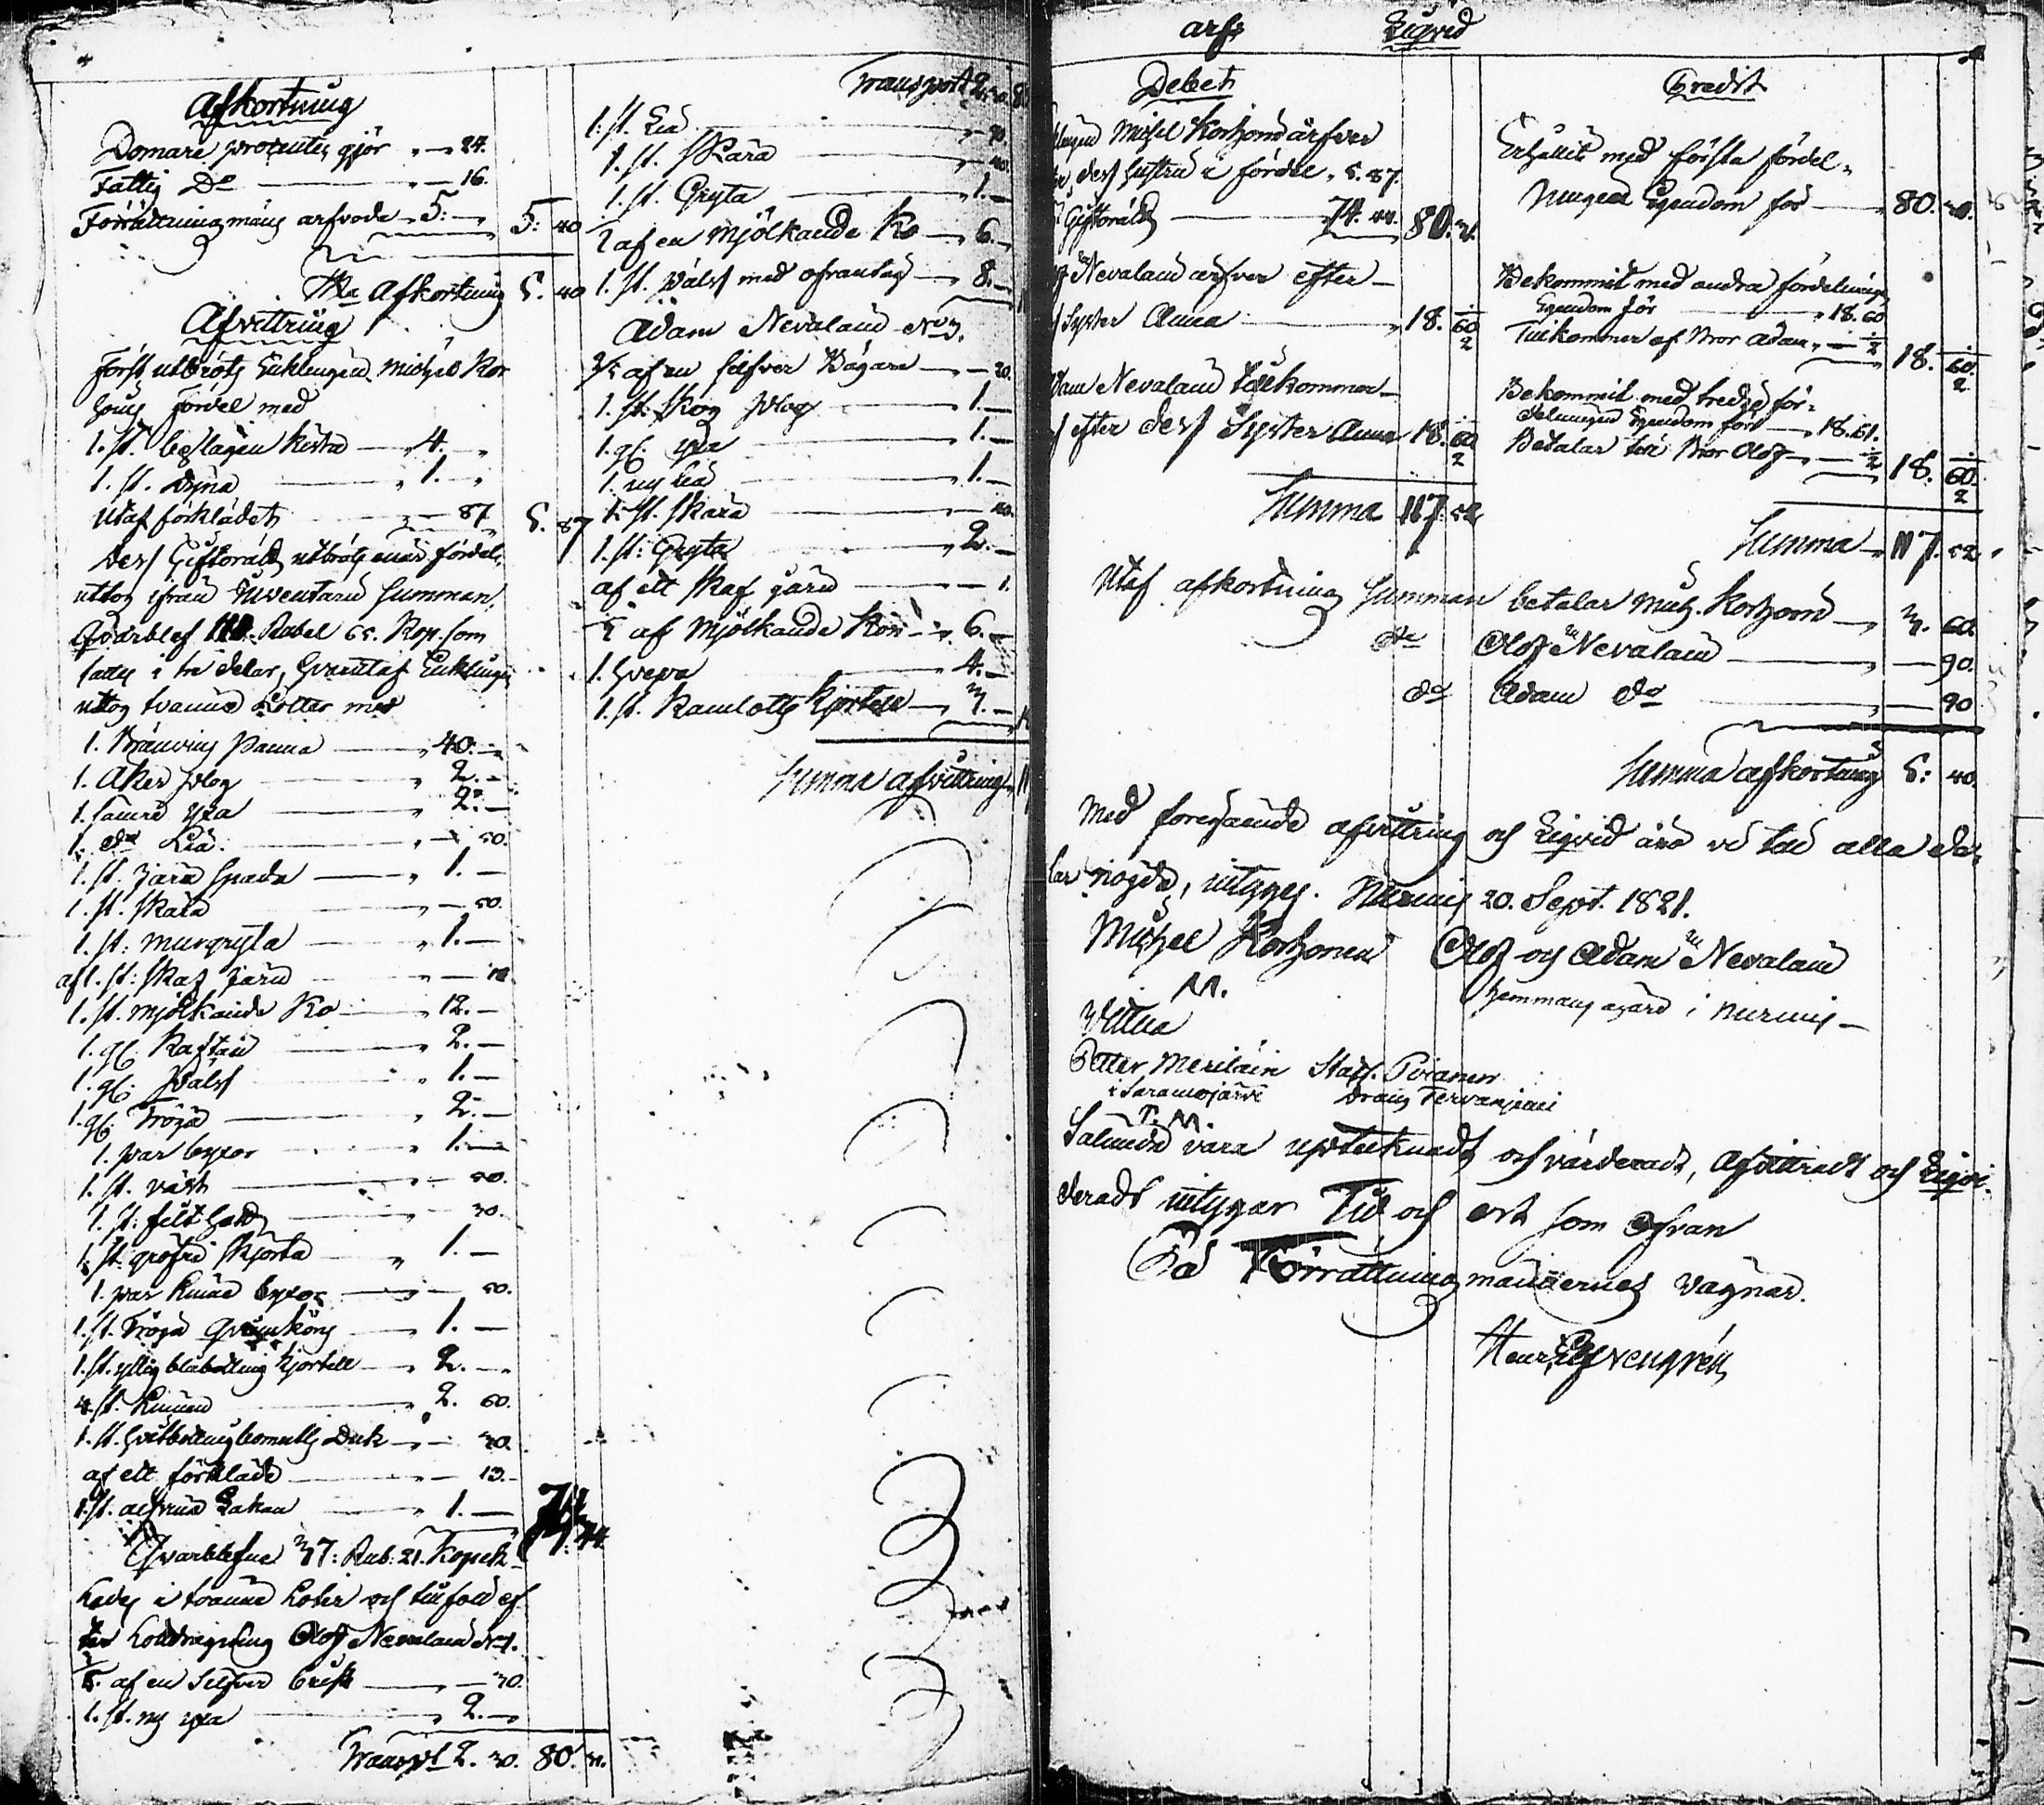 Afkortning
Domare procenten gjör „ — 24.
Fattig Do — „ — 16.
Förrättningmäns arfvode „ 5: — 5: 40
Sma Afkortning 5. 40
Afvittring
Först utbröts Enklingen Michel Kor
honens Fördel med
1. st. beslagen Kista — „ 4. „
1. st. Dyna — „ 1. „
Utaf förklädet — „ — 87. 5. 87
Dess Giftorätt utbröts
uttog ifrån Inventarii Summan,
Qvarblef 111. Rubel 65. Kop. som
sattes i tre delar, hvarutaf Enklingen
uttog tvänne Lotter med
1. Bränvins Panna — „ 40. —
1. Åker plog — „ 2. —
1. sämre yxa — „ 2. —
1. do Lia — „ — 50.
1. st. Järn spada — „ 1. —
1. st. Skära — „ — 50.
1. st: murgryta — „ 1. —
af 1. st: Skaf Järn — „ —
1. st. mjölkande Ko — „ 12. —
1. gl. Kaftan — „ 2. —
1. gl. Päls — „ 1. —
1. gl. Tröja — „ 2. —
1. par byxor — „ 1. —
1. st. väst — „ — 50.
1. st: filt hatt — „ — 30.
1. st. gröfre Skjorta — „ 1. —
1. par byxor — „ — 50.
1. st. Tröja — „ 1. —
1. st. yllig blåbotting kjortell — „ 2. —
4. st. — „ 2. 60.
1. st. hvitbotting bomulls Duk — „ — 30.
af ett förkläde — „ — 13.
1. st. Lakan — „ 1. — 74: 44
Qvarblefne 37: Rub: 21. Kopek
lades i tvänne Loter och tillföll ef
ter Lottdragning Olof Nevalain No 1.
af en Silfver brisk — „ — 30.
1. st. ny yxa — „ 2. —
Transpt 2. 30. 80. 31.
Transport 2. 30. 8
1. st. Lia — „ —
1. st. Skära — „ — 40.
1. st. Gryta — „ 1. —
½ af en mjölkande Ko — „ 6. „
1. st. Päls med ofvantag — „ 8. —
Adam Nevalain No 3.
af en silfver Bägare — „ — 20.
1. st. Skog plog — „ 1. —
1. gl. yxa — „ 1. —
1. ny Lia — „ 1. —
1. st. Skära — „ — 40.
1. st: Gryta — „ 2. —
af ett Skaf järn — „ — 1.
½ af mjölkande Kon — „ 6. —
1. hvepa — „ 4. —
1. st. Kamlotts kjortell — „ 3. —
Summa afvittring „ 11
arfs Liqvid
Debet
klingen Michel Korhonen ärfver
dess hustru i fördel „ 5. 87.
Giftorätt — 74. 44. 80. 31.
Nevalain ärfver efter
Syster Anna — „ 18. 60 ½
dam Nevalain tillkommer
efter dess Syster Anna 18. 60 ½
Summa 117. 52
Credit
Erhållit med första fördel„
ningens Egendom för — 80. 31.
Bekommit med andra fördelnings
Egendom för — „ 18. 60
Tillkommer af Bror Adam „ — ½ 18. 60 ½
Bekommit med tredje för„
delningens Egendom för — „ 18. 61.
Betalar till Bror Olof „ — ½ 18. 60 ½
Summa „ 117. 52
Utaf afkortning Summan betalar Mich. Korhonen — „ 3. 60.
do Olof Nevalain — „ — 90.
do Adam do — „ — 90
Summa afkortning 5: 40.
Med foregående afvittring och Liqvid äro vi till alla de„
lar nögde, intyges. Nurmis 20. Sept. 1821.
Michel Korhonen Olof och Adam Nevalain
M. hemmans ägare i Nurmis —
Vittna
Petter Meriläin Staff. Piirainen
i Saramojärvi Dräng
P. M.
Salunda vara uptecknadt och värderadt, afvittradt och Liqvi„
deradt intygar Tid och ort som ofvan
På Förrättningmännernes vägnar.